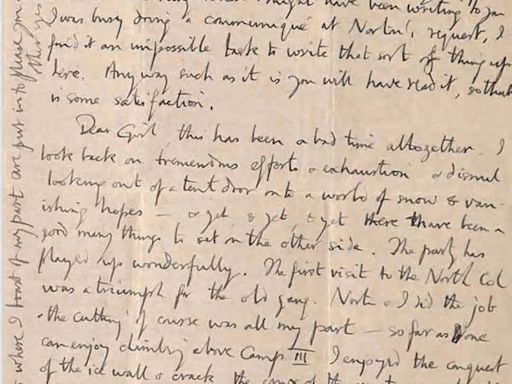 have been writing to you
I was busy doing a communiqué at Norton's request, I
find it an impossible task to write that sort of thing up
here. Anyway such as it is you will have read it, so that
is some satisfaction.
Dear Girl, this has been a bad time altogether. I
look back on tremendous efforts & exhaustion & dismal
looking out of a tent door on to a world of snow & van-
ishing hopes - & yet, & yet, & yet there have been a
good many things to set on the other side. The party has
played up wonderfully. The first visit to the North Col
was a triumph for the old gang. Norton & I did the job
& the cutting of course was all my part - so far as one
can enjoy climbing above Camp III I enjoyed the conquest
of the ice wall & crack, the crux of the
where I boast of my part are put in to please you